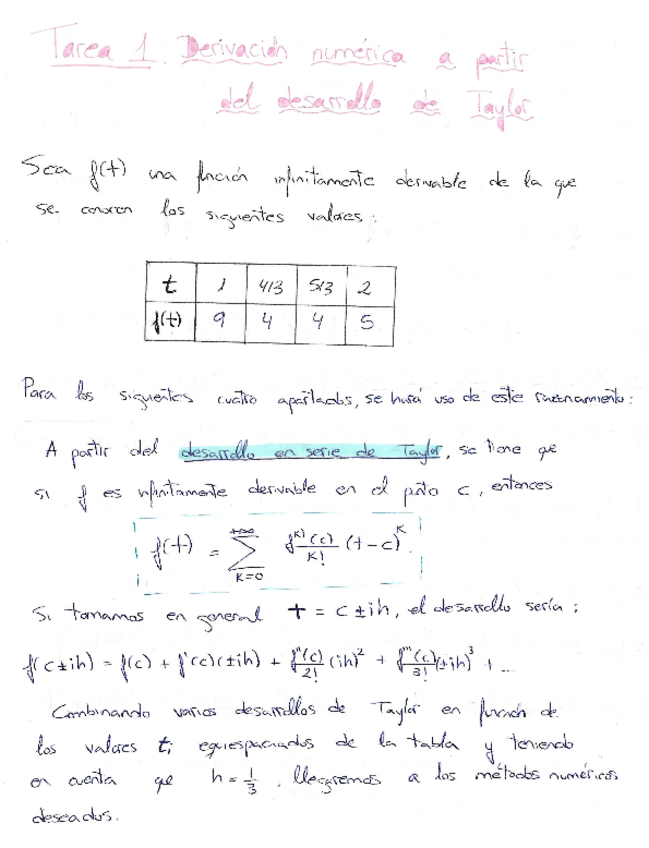 Tarea 1. Derivación numérica a partir
del desarrollo de Taylor
Sea f(t) una función infinitamente derivable de la que
se conocen los siguientes valores:
t 1 4/3 5/3 2
f(t) 9 4 4 5
Para los siguientes cuatro apartados, se hará uso de este razonamiento:
A partir del desarrollo en serie de Taylor, se tiene que
si f es infinitamente derivable en el pnto c, entonces
f(t) = ∑_{K=0}^{+∞} f^{K)}(c)/K! (t-c)^K.
Si tomamos en general t = c ± ih, el desarrollo sería:
f(c±ih) = f(c) + f'(c)(±ih) + f''(c)/2! (ih)² + f'''(c)/3! (±ih)³ + ...
Combinando varios desarrollos de Taylor en función de
los valores tᵢ equiespaciados de la tabla y teniendo
en cuenta que h = 1/3, llegaremos a los métodos numéricos
deseados.